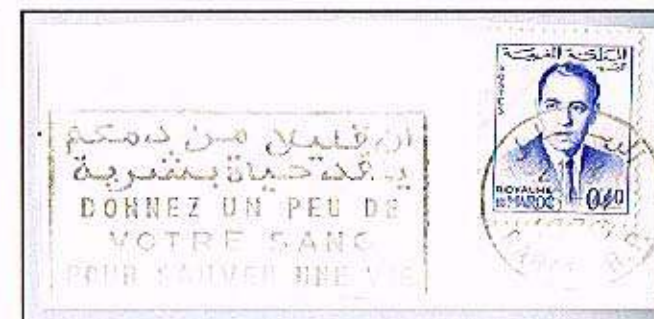 ان قليلا من دمكم
ينقد حياة بشرية
DONNEZ UN PEU DE
VOTRE SANG
POUR SAUVER UNE VIE
المملكة المغربية
POSTES
ROYAUME
DU MAROC
0,40